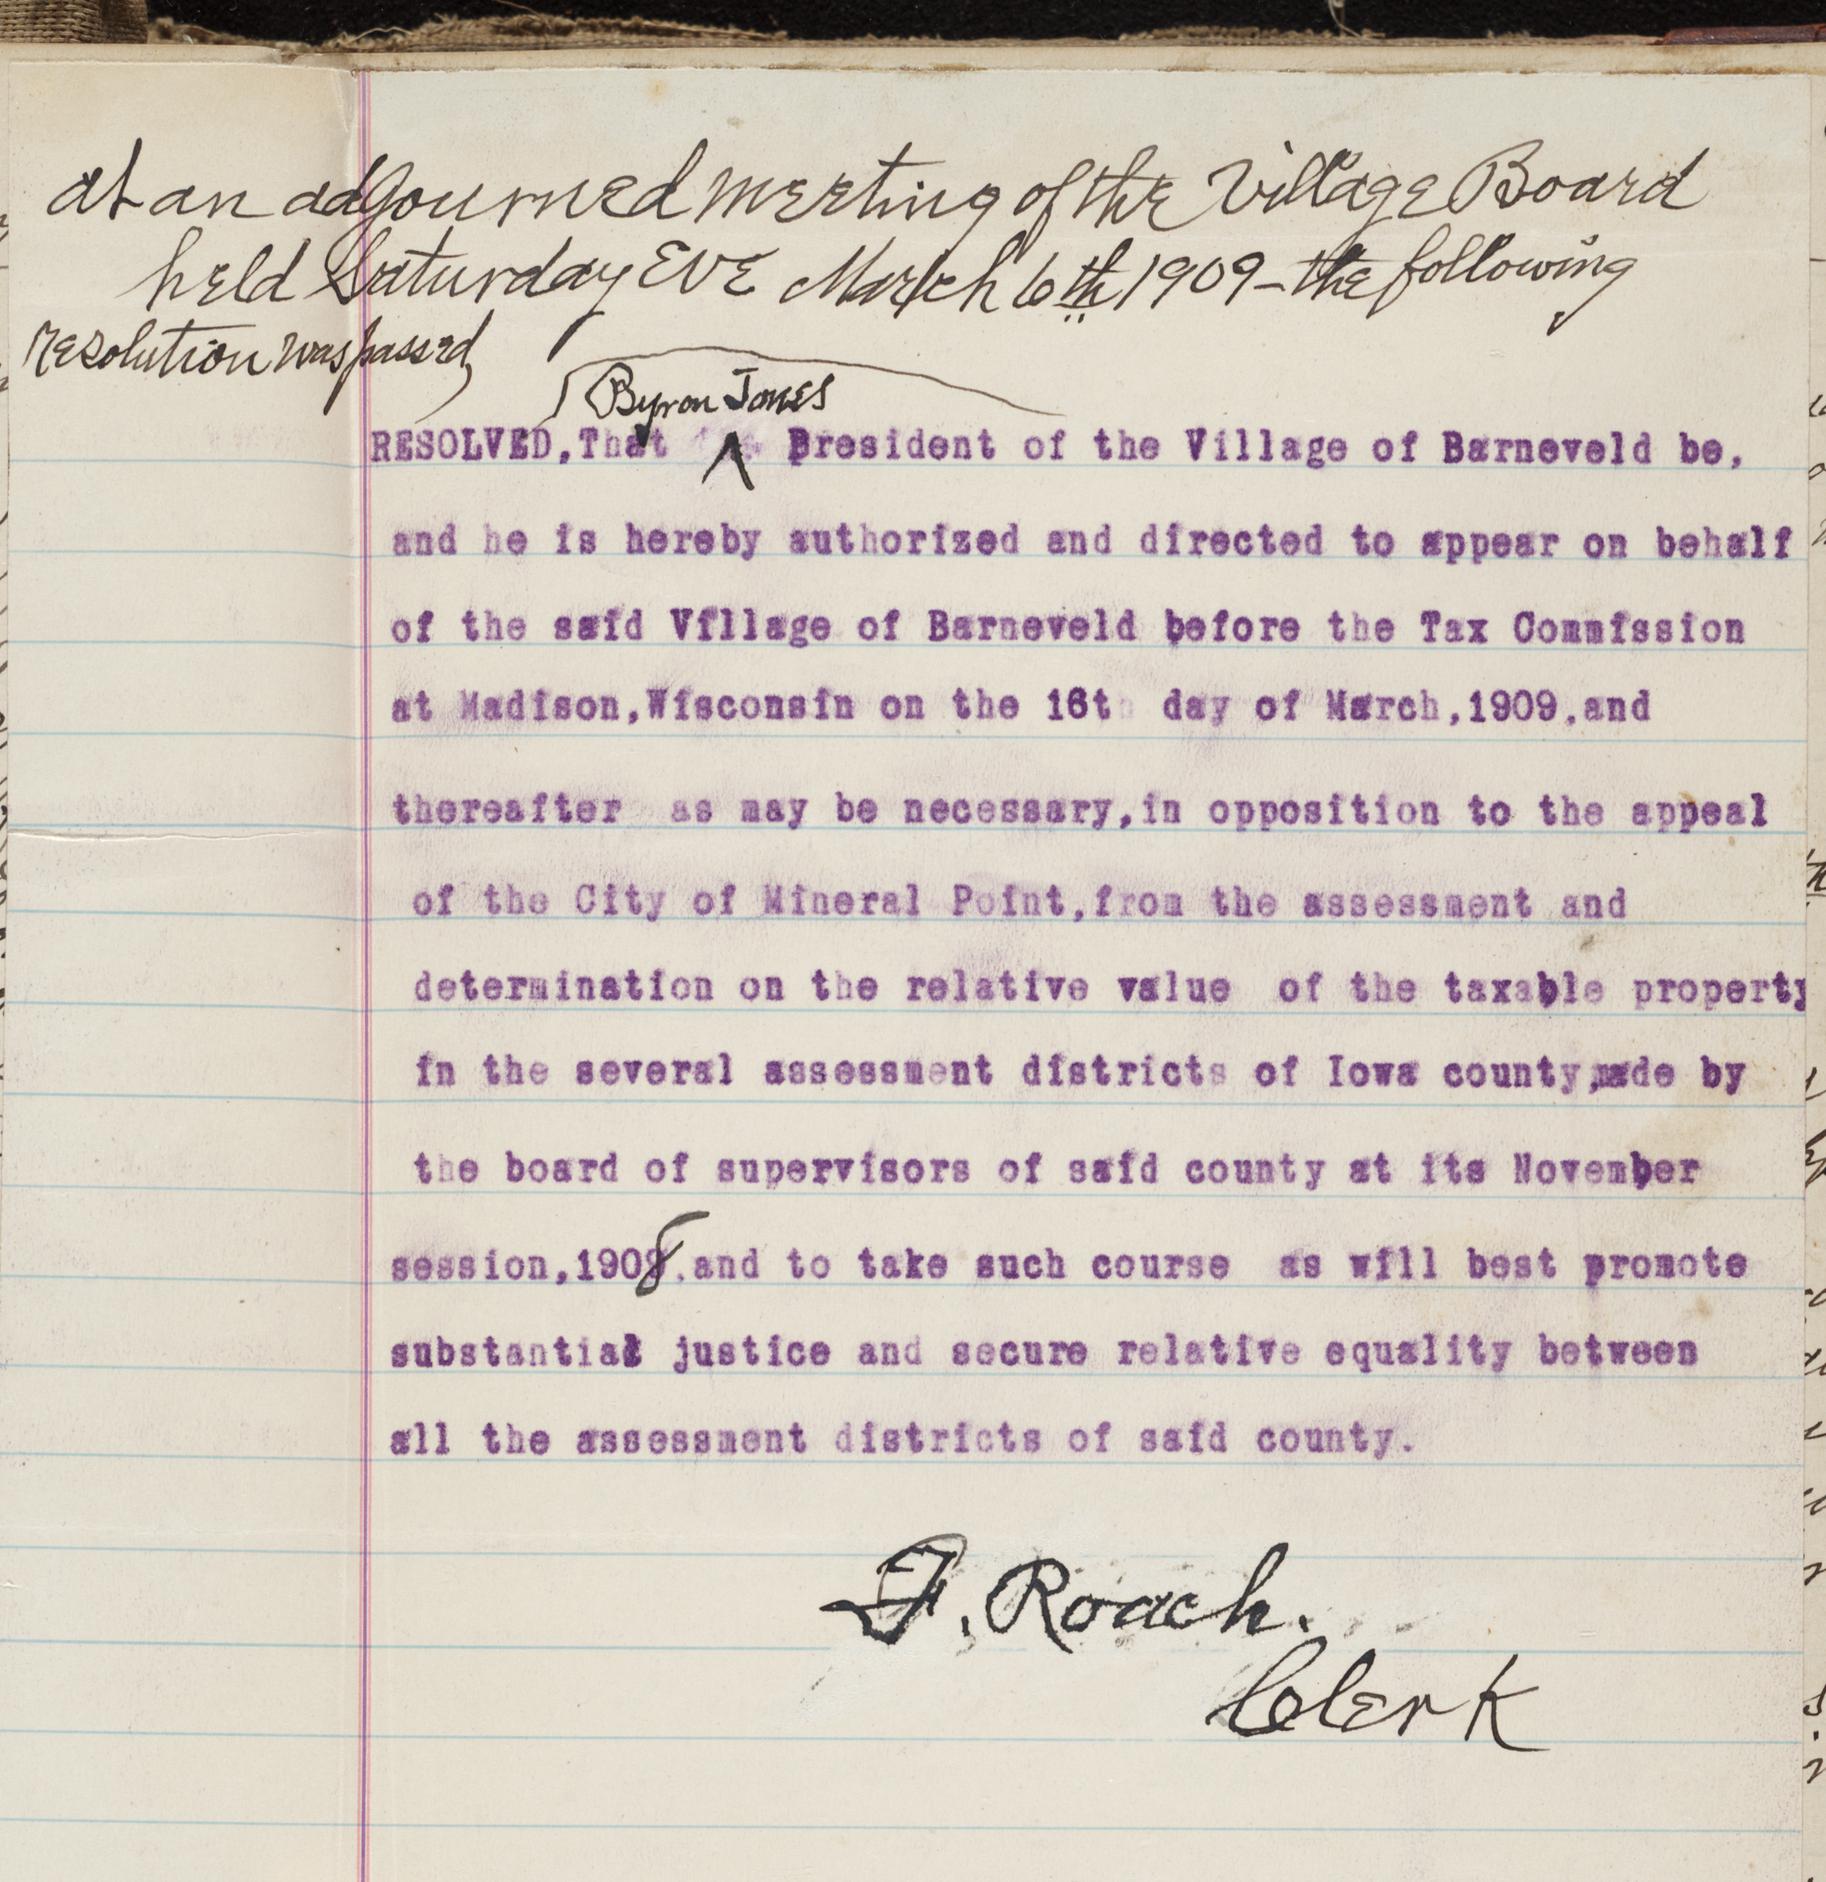 at an adjourned meeting of the Village Board
held Saturday Eve March 6th 1909 - the following
resolution was passed
Byron Jones
RESOLVED,That President of the Village of Barneveld be,
and he is hereby authorized and directed to appear on behalf
of the said Village of Barneveld before the Tax Commission
at Madison,Wisconsin on the 16th day of March,1909,and
thereafter as may be necessary,in opposition to the appeal
of the City of Mineral Point,from the assessment and
determination on the relative value of the taxable property
in the several assessment districts of Iowa county,made by
the board of supervisors of said county at its November
session,1908,and to take such course as will best promote
substantial justice and secure relative equality between
all the assessment districts of said county.
F. Roach.
Clerk